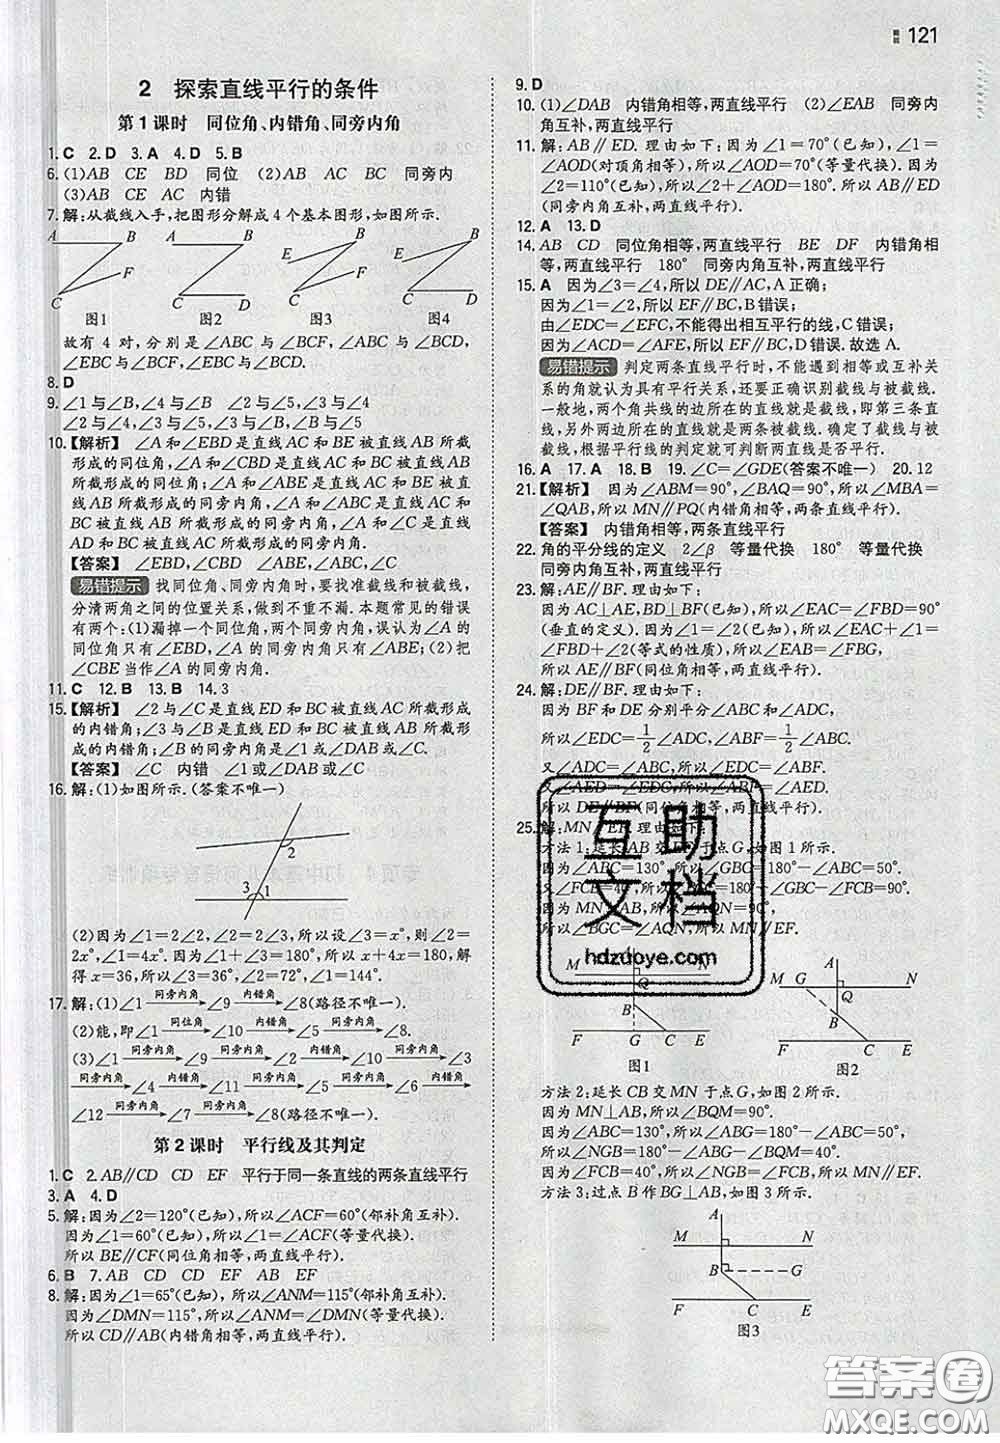 121
2 探索直线平行的条件
第1课时 同位角、内错角、同旁内角
1.C 2.D 3.A 4.D 5.B
6.(1)AB CE BD 同位 (2)AB AC BC 同旁内
(3)AB CE AC 内错
7.解:从截线入手,把图形分解成4个基本图形,如图所示.
A B C F
A B C D
E B C F
E B C D
图1 图2 图3 图4
故有4对,分别是∠ABC与∠BCF,∠ABC与∠BCD,
∠EBC与∠BCF,∠EBC与∠BCD.
8.D
9.∠1与∠B,∠4与∠B ∠2与∠5,∠3与∠4
∠2与∠4,∠3与∠5,∠3与∠B,∠B与∠5
10.【解析】 ∠A和∠EBD是直线AC和BE被直线AB所截
形成的同位角,∠A和∠CBD是直线AC和BC被直线AB
所截形成的同位角;∠A和∠ABE是直线AC和BE被直线
AB所截形成的同旁内角,∠A和∠ABC是直线AC和
BC被直线AB所截形成的同旁内角,∠A和∠C是直线
AD和BC被直线AC所截形成的同旁内角.
【答案】 ∠EBD,∠CBD ∠ABE,∠ABC,∠C
易错提示 找同位角、同旁内角时,要找准截线和被截线,
分清两角之间的位置关系,做到不重不漏.本题常见的错误
有两个:(1)漏掉一个同位角,两个同旁内角,误认为∠A的
同位角只有∠EBD,∠A的同旁内角只有∠ABE;(2)把
∠CBE当作∠A的同旁内角.
11.C 12.B 13.B 14.3
15.【解析】 ∠2与∠C是直线ED和BC被直线AC所截形成
的内错角;∠3与∠B是直线ED和BC被直线AB所截形
成的内错角;∠B的同旁内角是∠1或∠DAB或∠C.
【答案】 ∠C 内错 ∠1或∠DAB或∠C
16.解:(1)如图所示.(答案不唯一)
2
3 1
(2)因为∠1=2∠2,∠2=2∠3,所以设∠3=x°,则∠2=
2x°,∠1=4x°.因为∠1+∠3=180°,所以x+4x=180,解
得x=36,所以∠3=36°,∠2=72°,∠1=144°.
17.解:(1)∠1 同旁内角 ∠9 内错角 ∠8(路径不唯一).
(2)能,即∠1 同位角 ∠10 内错角 ∠5 同旁内角 ∠8.
(3)∠1 同旁内角 ∠9 同旁内角 ∠2 内错角 ∠10 同旁内角 ∠3
同旁内角 ∠4 内错角 ∠11 同旁内角 ∠5 同旁内角 ∠6 内错角
∠12 同旁内角 ∠7 同旁内角 ∠8(路径不唯一).
第2课时 平行线及其判定
1.C 2.AB∥CD CD EF 平行于同一条直线的两条直线平行
3.A 4.D
5.解:因为∠2=120°(已知),所以∠ACF=60°(邻补角互补).
因为∠1=60°(已知),所以∠1=∠ACF(等量代换).
所以BE∥CF(同位角相等,两直线平行).
6.B 7.AB CD CD EF AB EF
8.解:因为∠1=65°(已知),所以∠ANM=115°(邻补角互补).
因为∠DMN=115°,所以∠ANM=∠DMN(等量代换).
所以CD∥AB(内错角相等,两直线平行).
9.D
10.(1)∠DAB 内错角相等,两直线平行 (2)∠EAB 同旁内
角互补,两直线平行
11.解:AB∥ED.理由如下:因为∠1=70°(已知),∠1=
∠AOD(对顶角相等),所以∠AOD=70°(等量代换).因为
∠2=110°(已知),所以∠2+∠AOD=180°.所以AB∥ED
(同旁内角互补,两直线平行).
12.A 13.D
14.AB CD 同位角相等,两直线平行 BE DF 内错角相
等,两直线平行 180° 同旁内角互补,两直线平行
15.A 因为∠3=∠4,所以DE∥AC,A正确;
因为∠1=∠2,所以EF∥BC,B错误;
由∠EDC=∠EFC,不能得出相互平行的线,C错误;
因为∠ACD=∠AFE,所以EF∥BC,D错误.故选A.
易错提示 判定两条直线平行时,不能遇到相等或互补关
系的角就认为具有平行关系,还要正确识别截线与被截线.
一般地,两个角共线的边所在的直线就是截线,即第三条直
线,另外两边所在的直线就是两条被截线.确定了截线与被
截线,根据平行线的判定就可判断两直线是否平行.
16.A 17.A 18.B 19.∠C=∠GDE(答案不唯一) 20.12
21.【解析】 因为∠ABM=90°,∠BAQ=90°,所以∠MBA=
∠QAB,所以MN∥PQ(内错角相等,两条直线平行).
【答案】 内错角相等,两条直线平行
22.角的平分线的定义 2∠β 等量代换 180° 等量代换
同旁内角互补,两直线平行
23.解:AE∥BF.理由如下:
因为AC⊥AE,BD⊥BF(已知),所以∠EAC=∠FBD=90°
(垂直的定义).因为∠1=∠2(已知),所以∠EAC+∠1=
∠FBD+∠2(等式的性质),所以∠EAB=∠FBG,
所以AE∥BF(同位角相等,两直线平行).
24.解:DE∥BF.理由如下:
因为BF和DE分别平分∠ABC和∠ADC,
所以∠EDC=1/2∠ADC,∠ABF=1/2∠ABC.
又∠ADC=∠ABC,所以∠EDC=∠ABF.
又∠AED=∠EDC,所以∠AED=∠ABF.
所以DE∥BF(同位角相等,两直线平行).
25.解:MN∥EF.理由如下:
方法1:延长AB交EF于点G,如图1所示.
因为∠ABC=130°,所以∠GBC=180°-∠ABC=50°.
又∠FCB=40°,所以∠BGC=180°-∠GBC-∠FCB=90°.
因为MN⊥AB,所以∠AQN=90°.
所以∠BGC=∠AQN,所以MN∥EF.
M A Q N B F G C E
图1
A M G Q N B F C E
图2
方法2:延长CB交MN于点G,如图2所示.
因为MN⊥AB,所以∠BQM=90°.
因为∠ABC=130°,所以∠ABG=180°-∠ABC=50°,
所以∠NGB=180°-∠BQM-∠ABG=40°.
因为∠FCB=40°,所以∠NGB=∠FCB,所以MN∥EF.
方法3:过点B作BG⊥AB,如图3所示.
A M N B G F C E
图3
互助文档
hdzuoye.com
答案圈
MXQE.COM